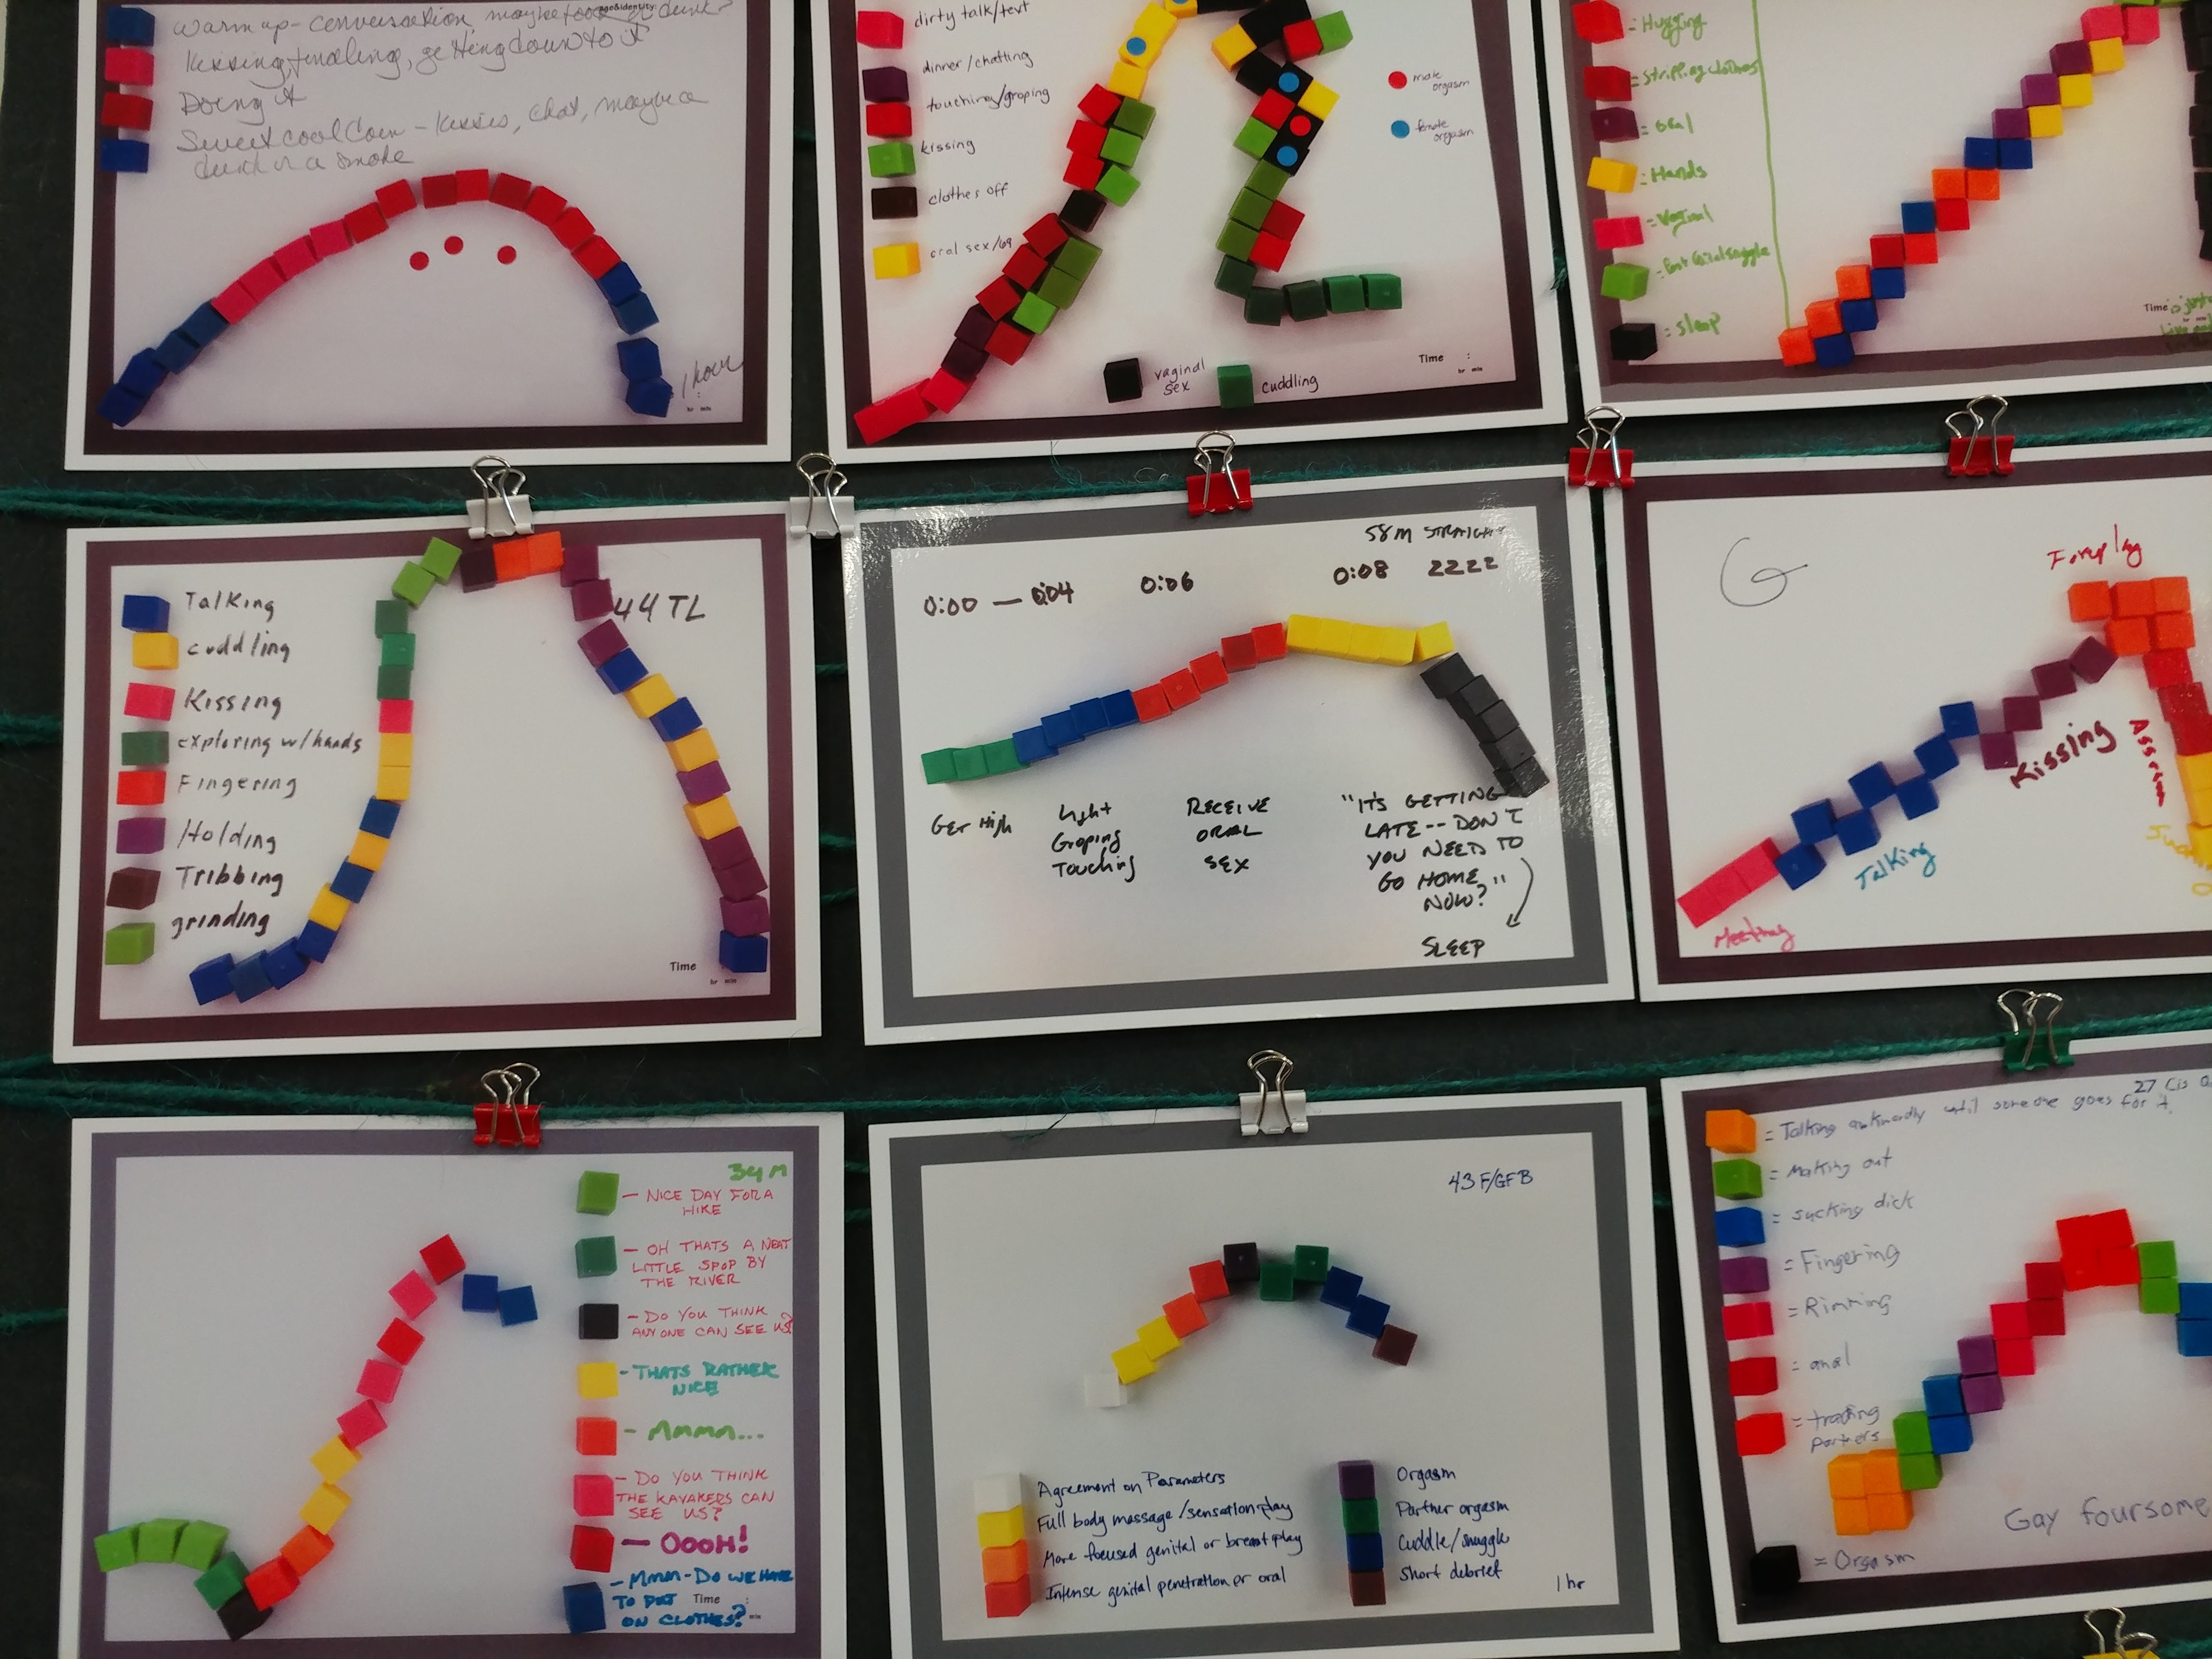 age&identity:
warm up - conversation, maybe food or drink?
Kissing, fondling, getting down to it
Doing it
Sweet cool down - kisses, chat, maybe a
drink or a smoke
1 hour
:
hr min
dirty talk/text
dinner/chatting
touching/groping
kissing
clothes off
oral sex/69
male
orgasm
female
orgasm
vaginal
sex
cuddling
Time :
hr min
= Hugging
= Stripping clothes
= oral
= Hands
= Vaginal
= sleep
Time
Talking
cuddling
Kissing
exploring w/hands
Fingering
Holding
Tribbing
grinding
44 TL
Time
hr min
58M STRAIGHT
0:00 — 0:04 0:06 0:08 2222
GET HIGH
Light
Groping
Touching
RECEIVE
ORAL
SEX
"IT'S GETTING
LATE -- DON'T
YOU NEED TO
GO HOME
NOW?"
SLEEP
G
Foreplay
Kissing
Talking
Meeting
34 M
- NICE DAY FOR A
HIKE
- OH THATS A NEAT
LITTLE SPOP BY
THE RIVER
- DO YOU THINK
ANYONE CAN SEE US?
- THATS RATHER
NICE
- Mmmm...
- DO YOU THINK
THE KAYAKERS CAN
SEE US?
- OOOH!
- Mmm - DO WE HAVE
TO PUT
ON CLOTHES?
Time :
min
43 F/GFB
Agreement on Parameters
Full body massage/sensation play
More focused genital or breast play
Intense genital penetration or oral
Orgasm
Partner orgasm
Cuddle/snuggle
Short debrief
1 hr
27 Cis
= Talking awkwardly until someone goes for it.
= Making out
= sucking dick
= Fingering
= Rimming
= anal
= trading
partners
= Orgasm
Gay foursome